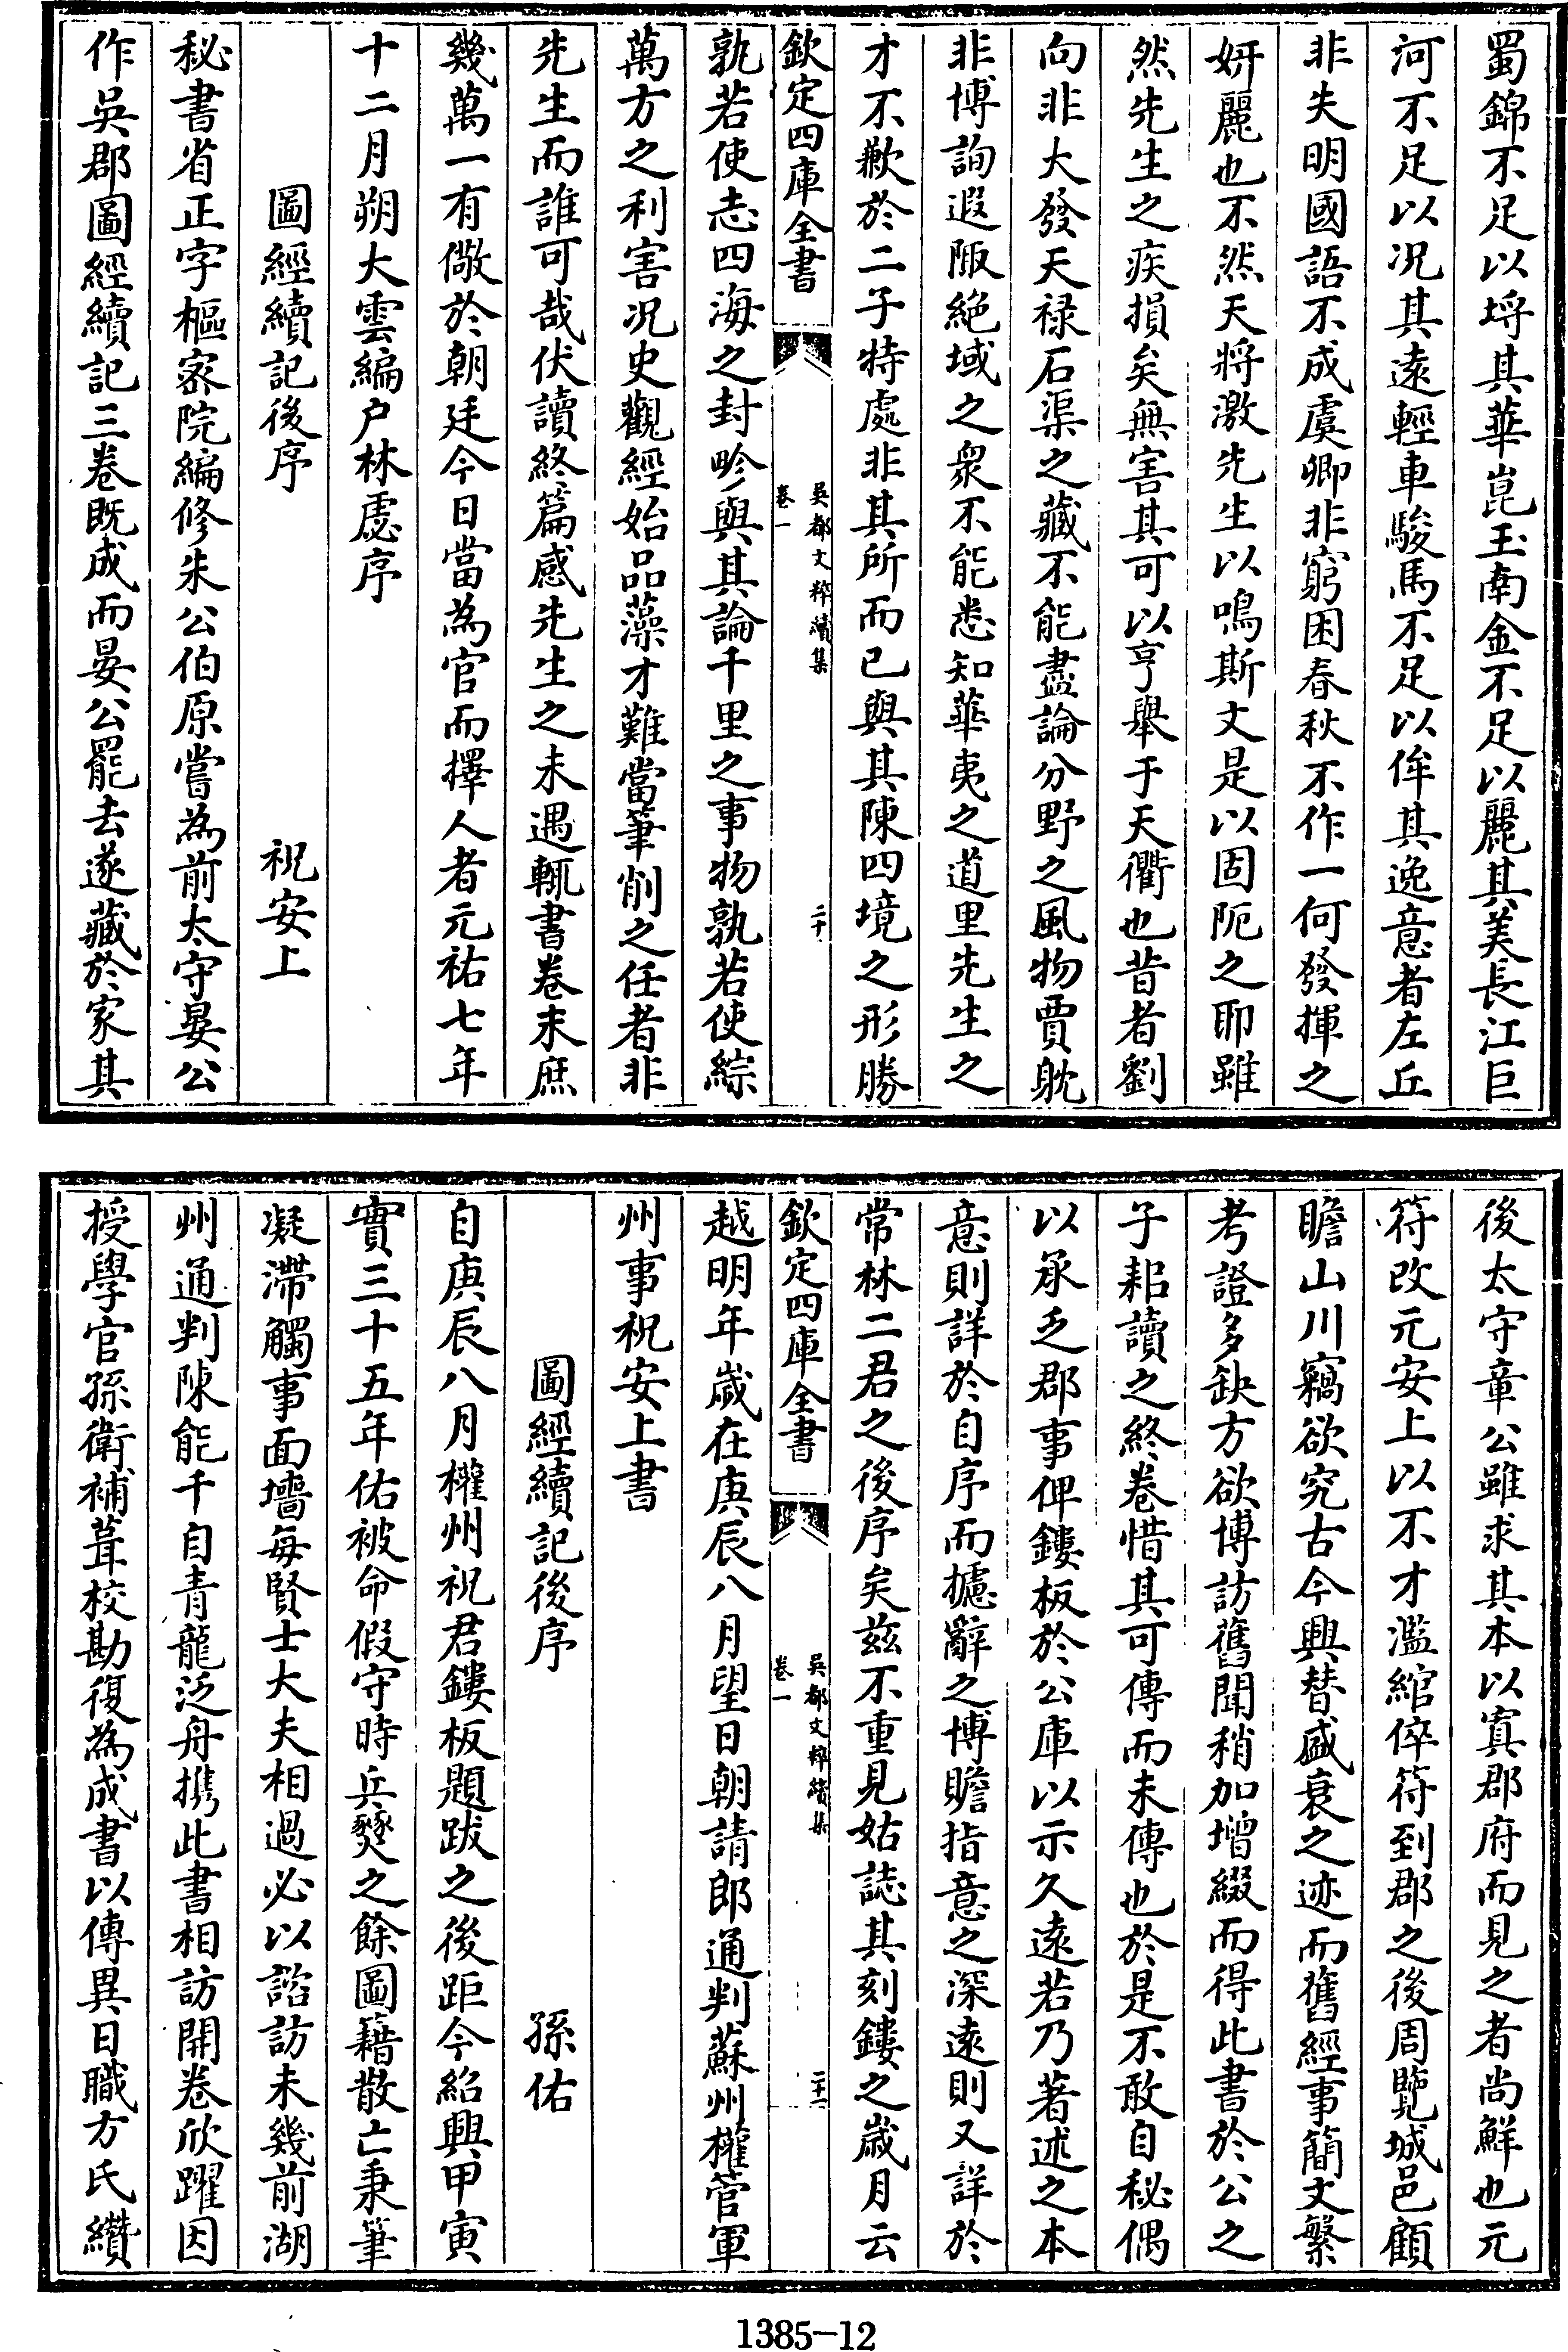 蜀錦不足以埒其華崑玉南金不足以麗其美長江巨
河不足以况其遠輕車駿馬不足以侔其逸意者左丘
非失明國語不成虞卿非窮困春秋不作一何發揮之
妍麗也不然天將激先生以鳴斯文是以固阨之耶雖
然先生之疾損矣無害其可以亨舉于天衢也昔者劉
向非大發天禄石渠之藏不能盡論分野之風物賈躭
非博詢遐陬絶域之衆不能悉知華夷之道里先生之
才不歉於二子特處非其所而已與其陳四境之形勝
欽定四庫全書
吳都文粹續集
卷一
二十
孰若使志四海之封畛與其論千里之事物孰若使綜
萬方之利害况史觀經始品藻才難當筆削之任者非
先生而誰可哉伏讀終篇感先生之未遇輒書卷末庶
幾萬一有儆於朝廷今日當為官而擇人者元祐七年
十二月朔大雲編户林虙序
圖經續記後序
祝安上
秘書省正字樞密院編修朱公伯原嘗為前太守晏公
作吳郡圖經續記三卷既成而晏公罷去遂藏於家其
後太守章公雖求其本以寘郡府而見之者尚鮮也元
符改元安上以不才濫綰倅符到郡之後周覽城邑顧
瞻山川竊欲究古今興替盛衰之迹而舊經事簡文繁
考證多缺方欲博訪舊聞稍加增綴而得此書於公之
子耜讀之終卷惜其可傳而未傳也於是不敢自秘偶
以承乏郡事俾鏤板於公庫以示久遠若乃著述之本
意則詳於自序而攄辭之博贍指意之深遠則又詳於
常林二君之後序矣兹不重見姑誌其刻鏤之歲月云
欽定四庫全書
吳都文粹續集
卷一
二十一
越明年歲在庚辰八月望日朝請郎通判蘇州權管軍
州事祝安上書
圖經續記後序
孫佑
自庚辰八月權州祝君鏤板題跋之後距今紹興甲寅
實三十五年佑被命假守時兵燹之餘圖籍散亡秉筆
凝滯觸事面墻每賢士大夫相過必以諮訪未幾前湖
州通判陳能千自青龍泛舟携此書相訪開卷欣躍因
授學官孫衛補葺校勘復為成書以傳異日職方氏纘
1385-12